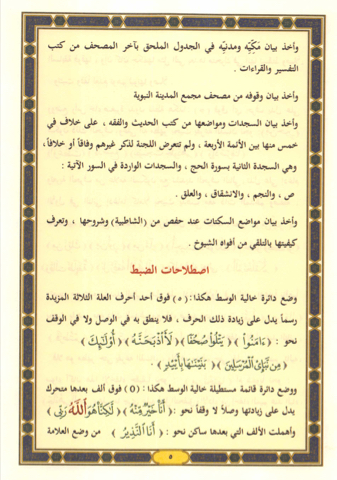 وأخذ بيان مَكِيّه ومدنيّه في الجدول الملحق بآخر المصحف من كتب
التفسير والقراءات .
وأخذ بيان وقوفه من مصحف مجمع المدينة النبوية
وأخذ بيان السجدات ومواضعها من كتب الحديث والفقه ، على خلاف في
خمس منها بين الأئمة الأربعة ، ولم تتعرض اللجنة لذكر غيرهم وفاقاً أو خلافاً،
وهي السجدة الثانية بسورة الحج ، والسجدات الواردة في السور الآتية :
ص ، والنجم ، والانشقاق ، والعلق .
وأخذ بيان مواضع السكتات عند حفص من (الشاطبية) وشروحها ، وتعرف
كيفيتها بالتلقي من أفواه الشيوخ .
اصطلاحات الضبط
وضع دائرة خالية الوسط هكذا: (ه) فوق أحد أحرف العلة الثلاثة المزيدة
رسماً يدل على زيادة ذلك الحرف ، فلا ينطق به في الوصل ولا في الوقف
نحو : ﴿ءَامَنُواْ﴾ ﴿يَتْلُواْ صُحُفًا﴾ ﴿لَأَاْذْبَحَنَّهُۥٓ﴾ ﴿أُوْلَٰٓئِكَ﴾
﴿مِن نَّبَإِيْ ٱلْمُرْسَلِينَ﴾ ﴿بَنَيْنَٰهَا بِأَيْيْدٍ﴾ .
ووضع دائرة قائمة مستطيلة خالية الوسط هكذا: (0) فوق ألف بعدها متحرك
يدل على زيادتها وصلاً لا وقفاً نحو : ﴿أَنَا۠ خَيْرٌ مِّنْهُ﴾ ﴿لَّٰكِنَّا۠ هُوَ ٱللَّهُ رَبِّي﴾
وأهملت الألف التي بعدها ساكن نحو : ﴿أَنَا ٱلنَّذِيرُ﴾ من وضع العلامة
٥